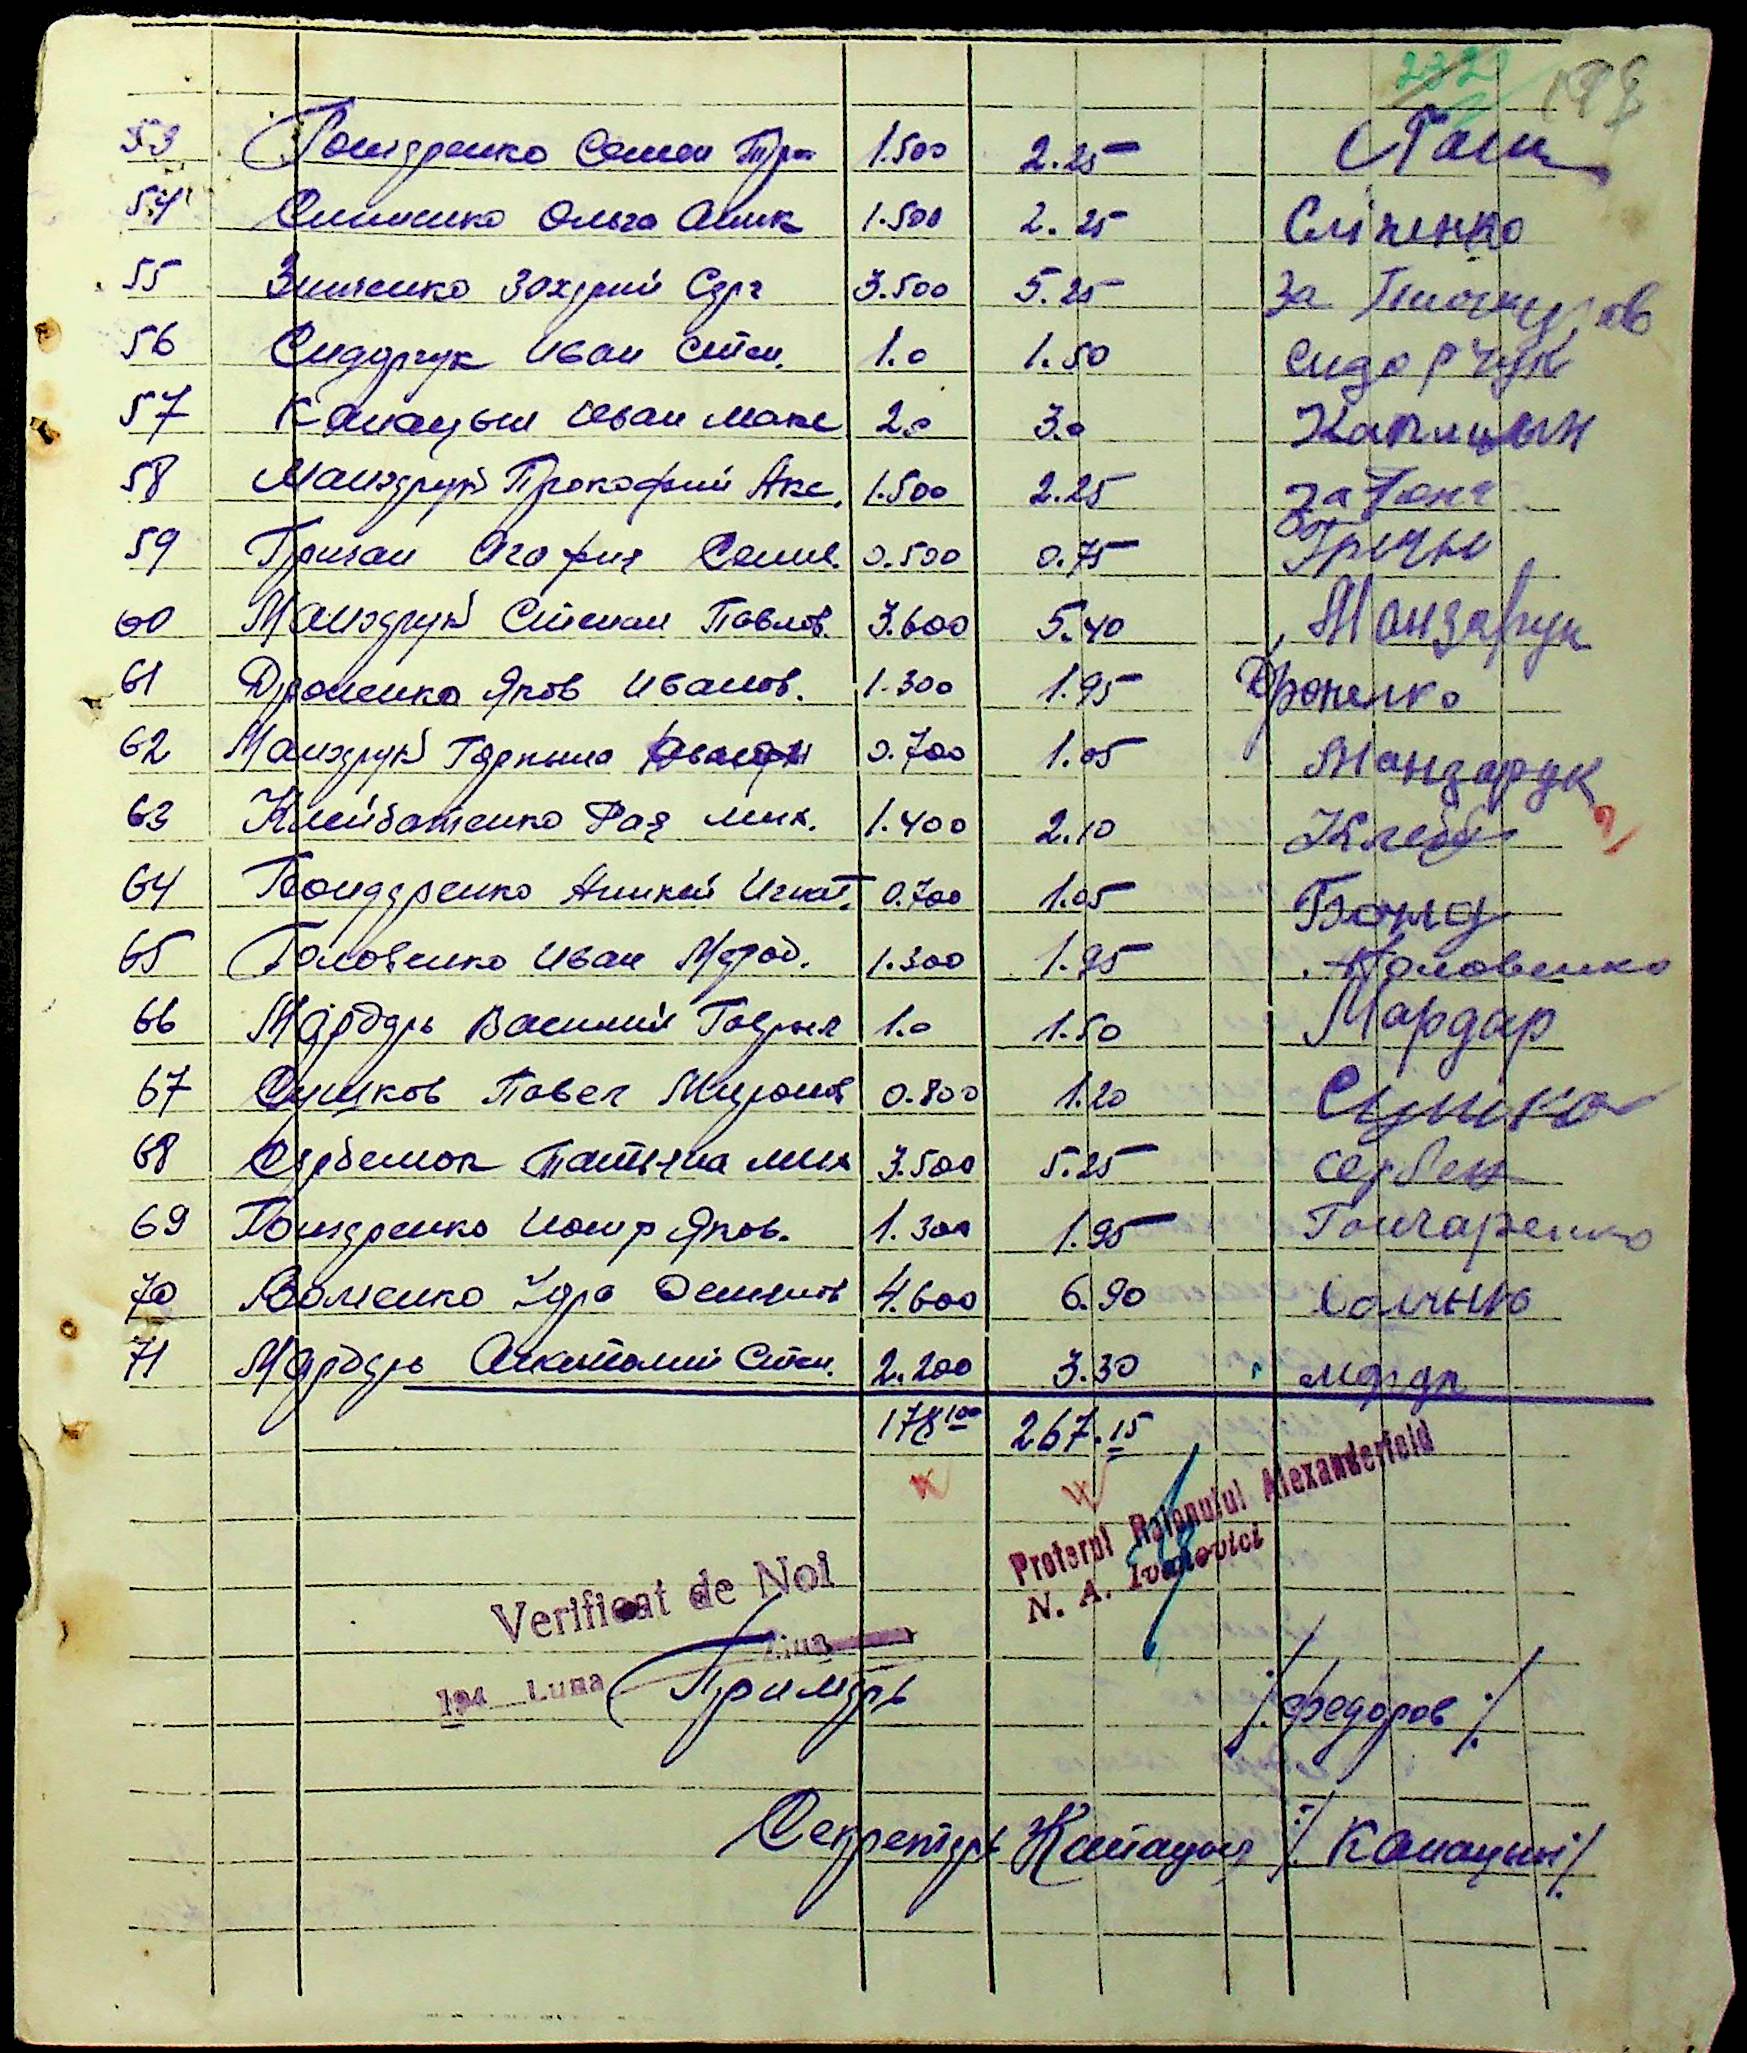 232 198
53 Гончаренко Семен Тро 1.500 2.25 Гонч
54 Слипенко Ольга Аник 1.500 2.25 Сліпенко
55 Зинченко Захарий Серг 3.500 5.25 За
56 Сидорчук Иван Степ. 1.0 1.50 Сидорчук
57 Капацын Иван Макс 2.0 3.0 Капацын
58 Манзарук Прокофий Акс. 1.500 2.25 за
59 Гричан Агафия Семен. 0.500 0.75 Гричан
60 Манзарук Степан Павлов. 3.600 5.40 Манзарук
61 Дроненко Яков Иванов. 1.300 1.95 Дроненко
62 Манзарук Горпына 0.700 1.05 Манзарук
63 Клейбатенко Рая Мих. 1.400 2.10 Клейб
64 Бондаренко Игнат. 0.700 1.05 Бонд
65 Головенко Иван Мефод. 1.300 1.95 Головенко
66 Мардарь Василий Гаврил 1.0 1.50 Мардар
67 Сушков Павел Миронов 0.800 1.20 Сушко
68 Сербенюк Татьяна Мих 3.500 5.25 Сербен
69 Гончаренко Яков. 1.300 1.95 Гончаренко
70 4.600 6.90
71 Мардарь Анатолий Степ. 2.200 3.30 Мардр
178100 267.15
Pretorul Raionului Alexanderfeld
N. A. Ivanovici
Verificat de Noi
194 Luna Ziua
Примарь /: Федоров :/
Секретарь Капацын /: Капацын :/